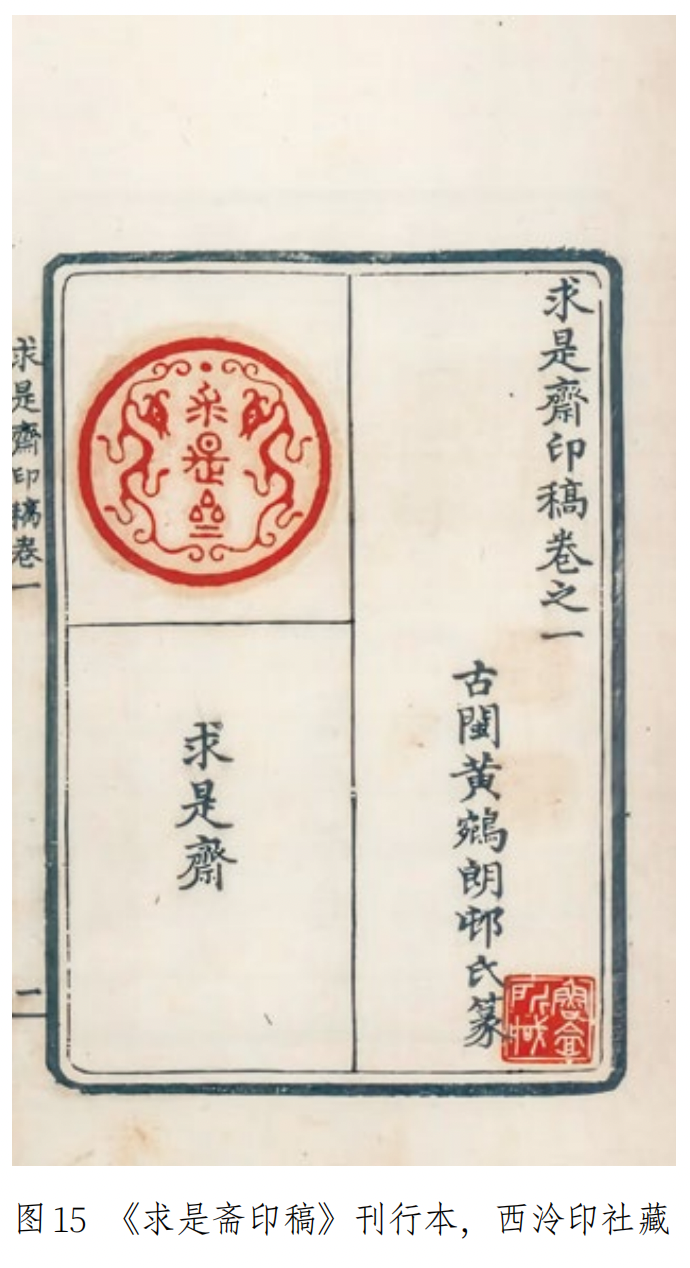 求是齋印稿卷之一
古閩黄鵷朗邨氏篆
求是齋
求是齋
求是齋印稿卷一
一
图15 《求是斋印稿》刊行本，西泠印社藏